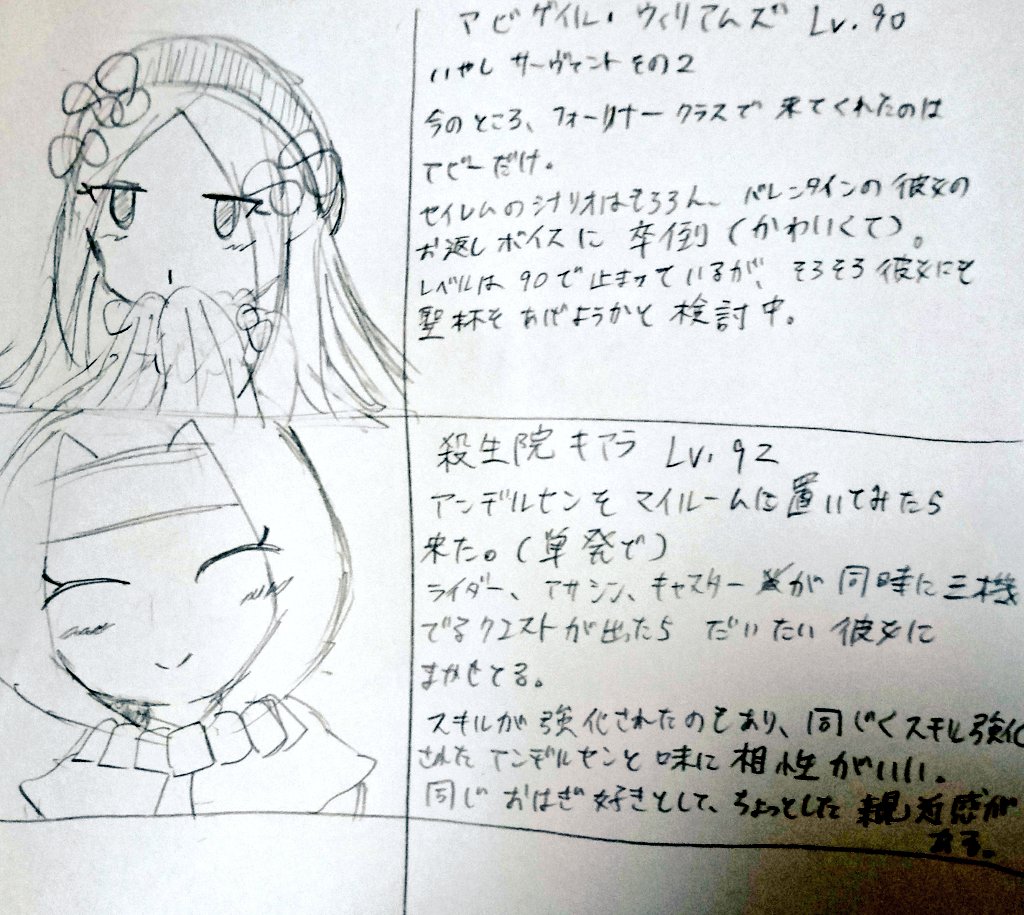 アビゲイル・ウィリアムズ Lv.90
いやし サーヴァント その2
今のところ、フォーリナークラスで 来てくれたのは
アビーだけ。
セイレムのシナリオはもろろん、バレンタインの彼女の
お返しボイスに 卒倒(かわいくて)。
レベルは90で止まっているが、そろそろ彼女にも
聖杯を あげようかと 検討中。
殺生院キアラ Lv.92
アンデルセンを マイルームに置いてみたら
来た。(単発で)
ライダー、アサシン、キャスターが 同時に三機
でるクエストが出たら だいたい 彼女に
まかせてる。
スキルが強化されたのもあり、同じくスキル強化
されたアンデルセンと 味に相性がいい。
同じ おはぎ好きとして、ちょっとした 親近感が
ある。